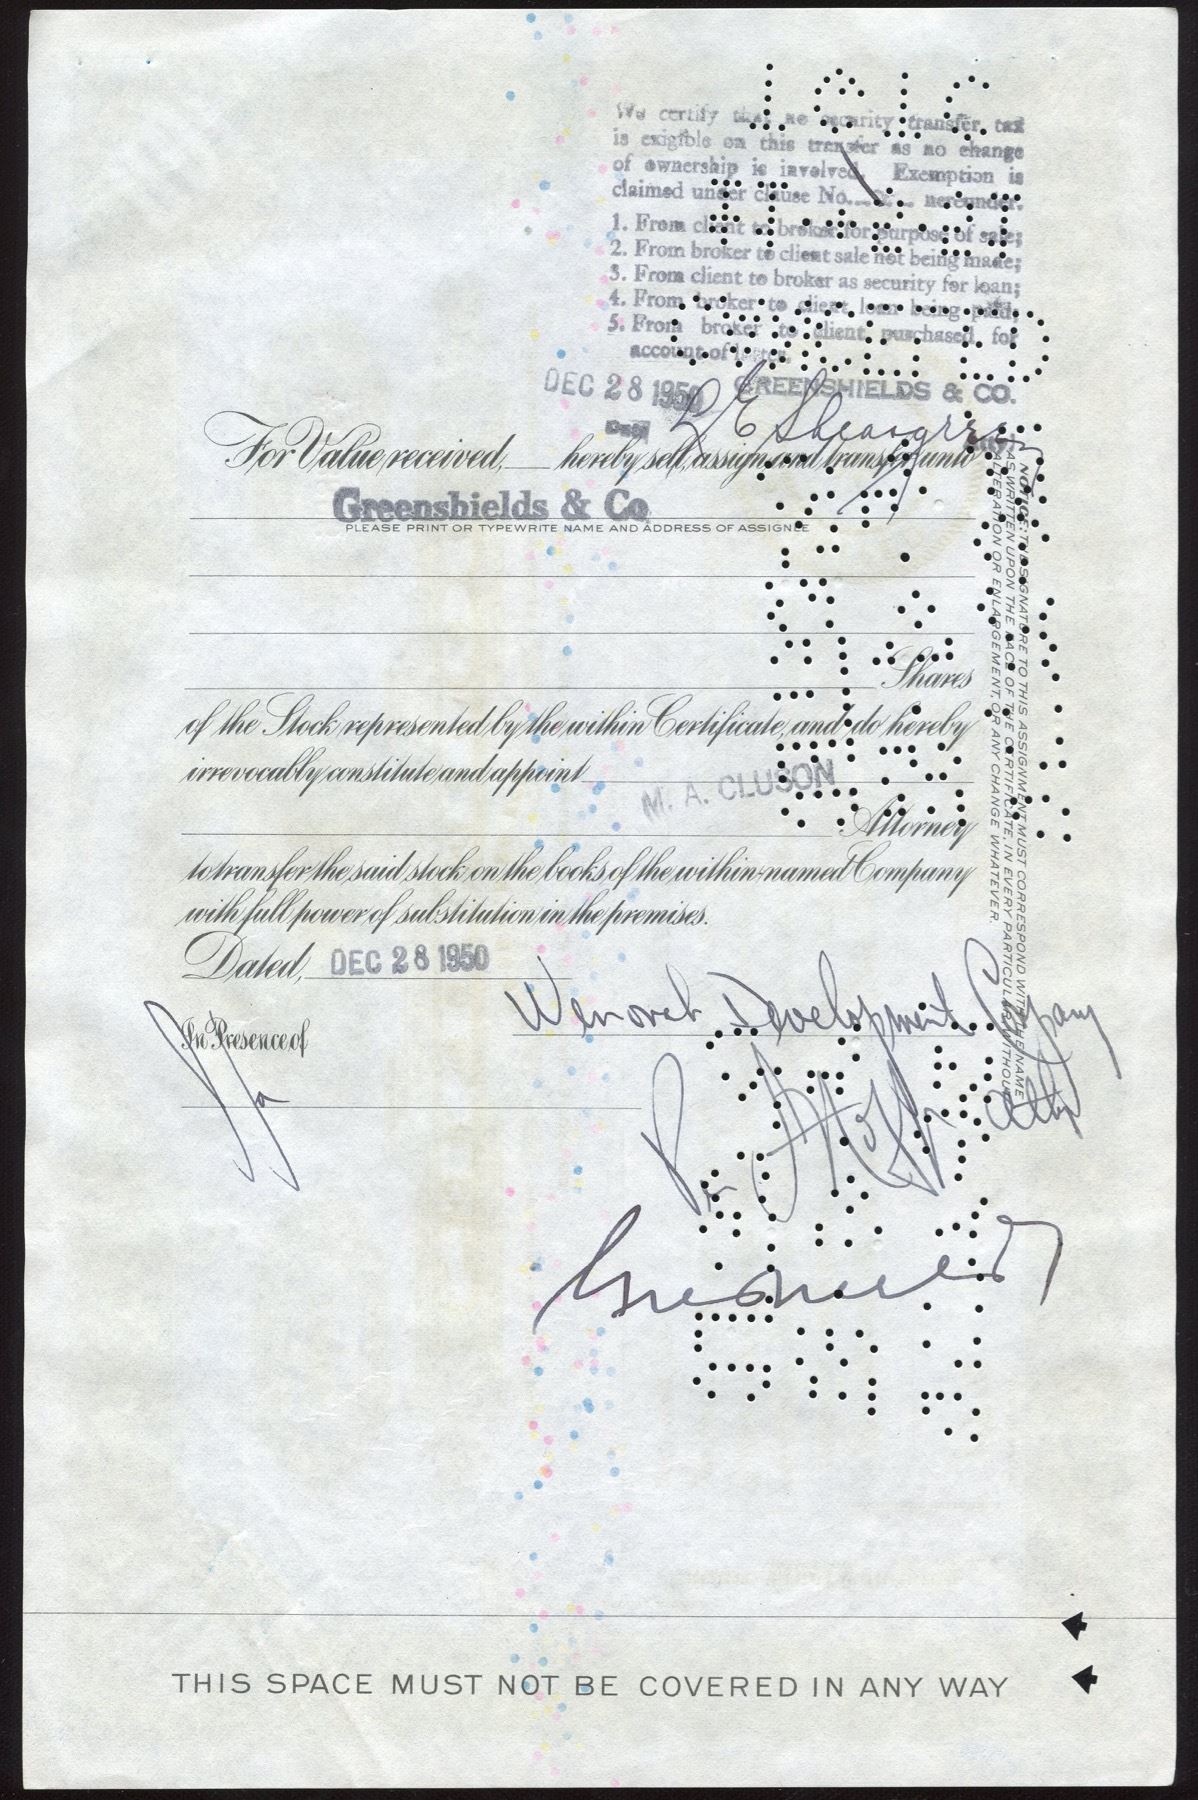 We certify that no security transfer tax
is exigible on this transfer as no change
of ownership is involved. Exemption is
claimed under clause No. 2 hereunder.
1. From client to broker for purpose of sale;
2. From broker to client sale not being made;
3. From client to broker as security for loan;
4. From broker to client loan being paid;
5. From broker to client, purchased for
account of latter.
DEC 28 1950 GREENSHIELDS & CO.
For Value received, hereby sell, assign and transfer unto
Greenshields & Co.
PLEASE PRINT OR TYPEWRITE NAME AND ADDRESS OF ASSIGNEE
Shares
of the Stock represented by the within Certificate, and do hereby
irrevocably constitute and appoint
M. A. CLUSON
Attorney
to transfer the said stock on the books of the within-named Company
with full power of substitution in the premises.
Dated, DEC 28 1950
Development Company
In Presence of
NOTICE: THE SIGNATURE TO THIS ASSIGNMENT MUST CORRESPOND WITH THE NAME
AS WRITTEN UPON THE FACE OF THE CERTIFICATE, IN EVERY PARTICULAR, WITHOUT
ALTERATION OR ENLARGEMENT, OR ANY CHANGE WHATEVER.
THIS SPACE MUST NOT BE COVERED IN ANY WAY